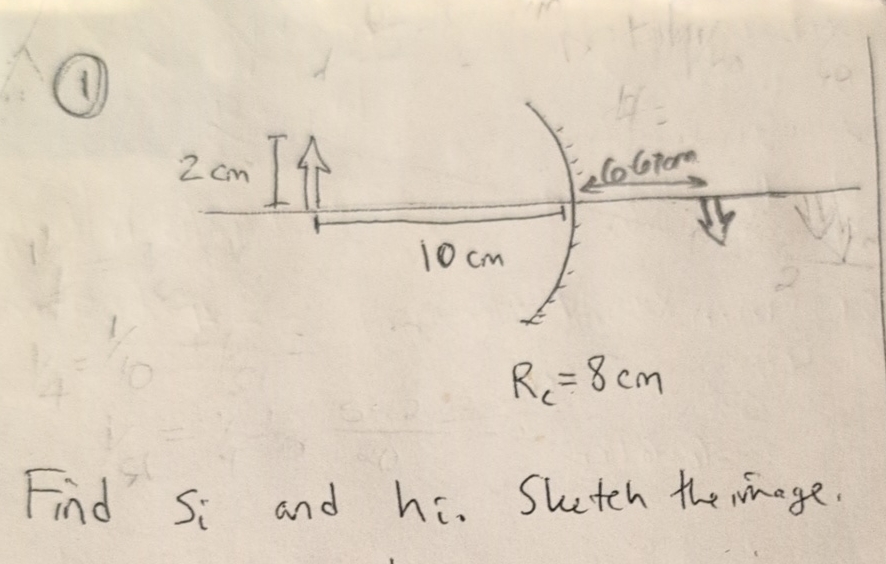 ①
2 cm
6.67cm
10 cm
Rc = 8 cm
Find si and hi. Sketch the image.